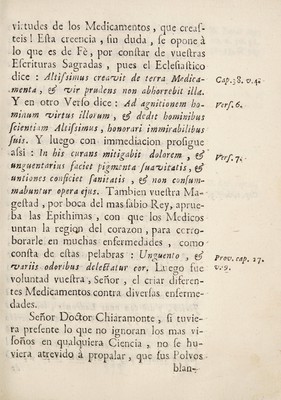 virtudes de los Medicamentos, que creaſ-
teis! Eſta creencia, ſin duda, ſe opone à
lo que es de Fè, por conſtar de vueſtras
Eſcrituras Sagradas, pues el Ecleſiaſtico
dice: Altiſſimus creavit de terra Medica- Cap.38. v.4.
menta, & vir prudens non abhorrebit illa.
Y en otro Verſo dice: Ad agnitionem ho- Verſ.6.
minum virtus illorum, & dedit hominibus
ſcientiam Altiſſimus, honorari immirabilibus
ſuis. Y luego con immediacion proſigue
aſsi: In his curans mitigabit dolorem, & Verſ.7.
unguentarius faciet pigmenta ſuavitatis, &
untiones conficiet ſanitatis, & non conſum-
mabuntur opera ejus. Tambien vueſtra Ma-
geſtad, por boca del mas ſabio Rey, aprue-
ba las Epithimas, con que los Medicos
untan la region del corazon, para corro-
borarle en muchas enfermedades, como
conſta de eſtas pelabras: Unguento, & Prov. cap. 27.
variis odoribus delectatur cor. Luego fue v.9.
voluntad vueſtra, Señor, el criar diferen-
tes Medicamentos contra diverſas enferme-
dades.
Señor Doctor Chiaramonte, ſi tuvie-
ra preſente lo que no ignoran los mas vi-
ſoños en qualquiera Ciencia, no ſe hu-
viera atrevido à propalar, que ſus Polvos
blan-